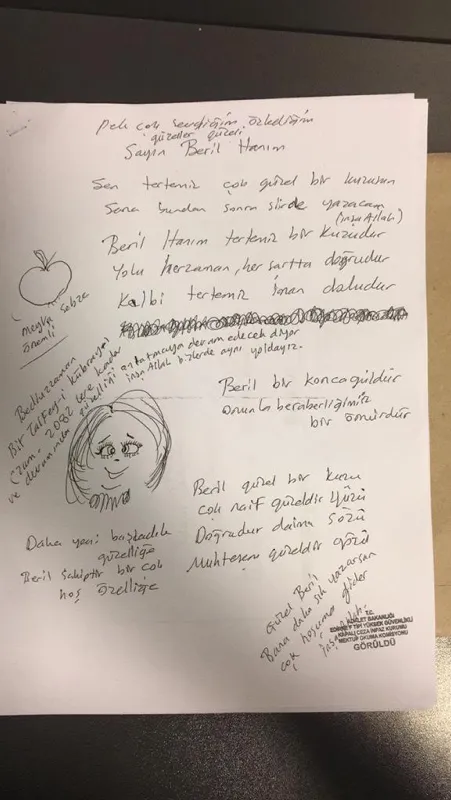 pek çok sevdiğim özlediğim
güzeller güzeli
Sayın Beril Hanım
Sen tertemiz çok güzel bir kuzusun
Sana bundan sonra şiirde yazacam
(inşaAllah)
Beril Hanım tertemiz bir kuzudur
Yolu herzaman, her şartta doğrudur
Kalbi tertemiz iman doludur
meyva sebze
önemli
Bediüzzaman
Bir Talebesi kübrayı
(zam. 2082 ye kadar
ve devamında güzelliğini anlatmaya devam edecek diyor
inşaAllah bizlerde aynı yoldayız.
Beril bir koncagüldür
onunla beraberliğimiz
bir ömürdür
Beril güzel bir kuzu
çok naif güzeldir yüzü
Doğrudur daima sözü
Muhteşem güzeldir gözü
Daha yeni başladık
güzelliğe
Beril sahiptir bir çok
hoş özelliğe
Güzel Beril
Bana daha sık yazarsan
çok hoşuma gider
inşaAllah.
T.C.
ADALET BAKANLIĞI
EDİRNE F TİPİ YÜKSEK GÜVENLİKLİ
KAPALI CEZA İNFAZ KURUMU
MEKTUP OKUMA KOMİSYONU
GÖRÜLDÜ